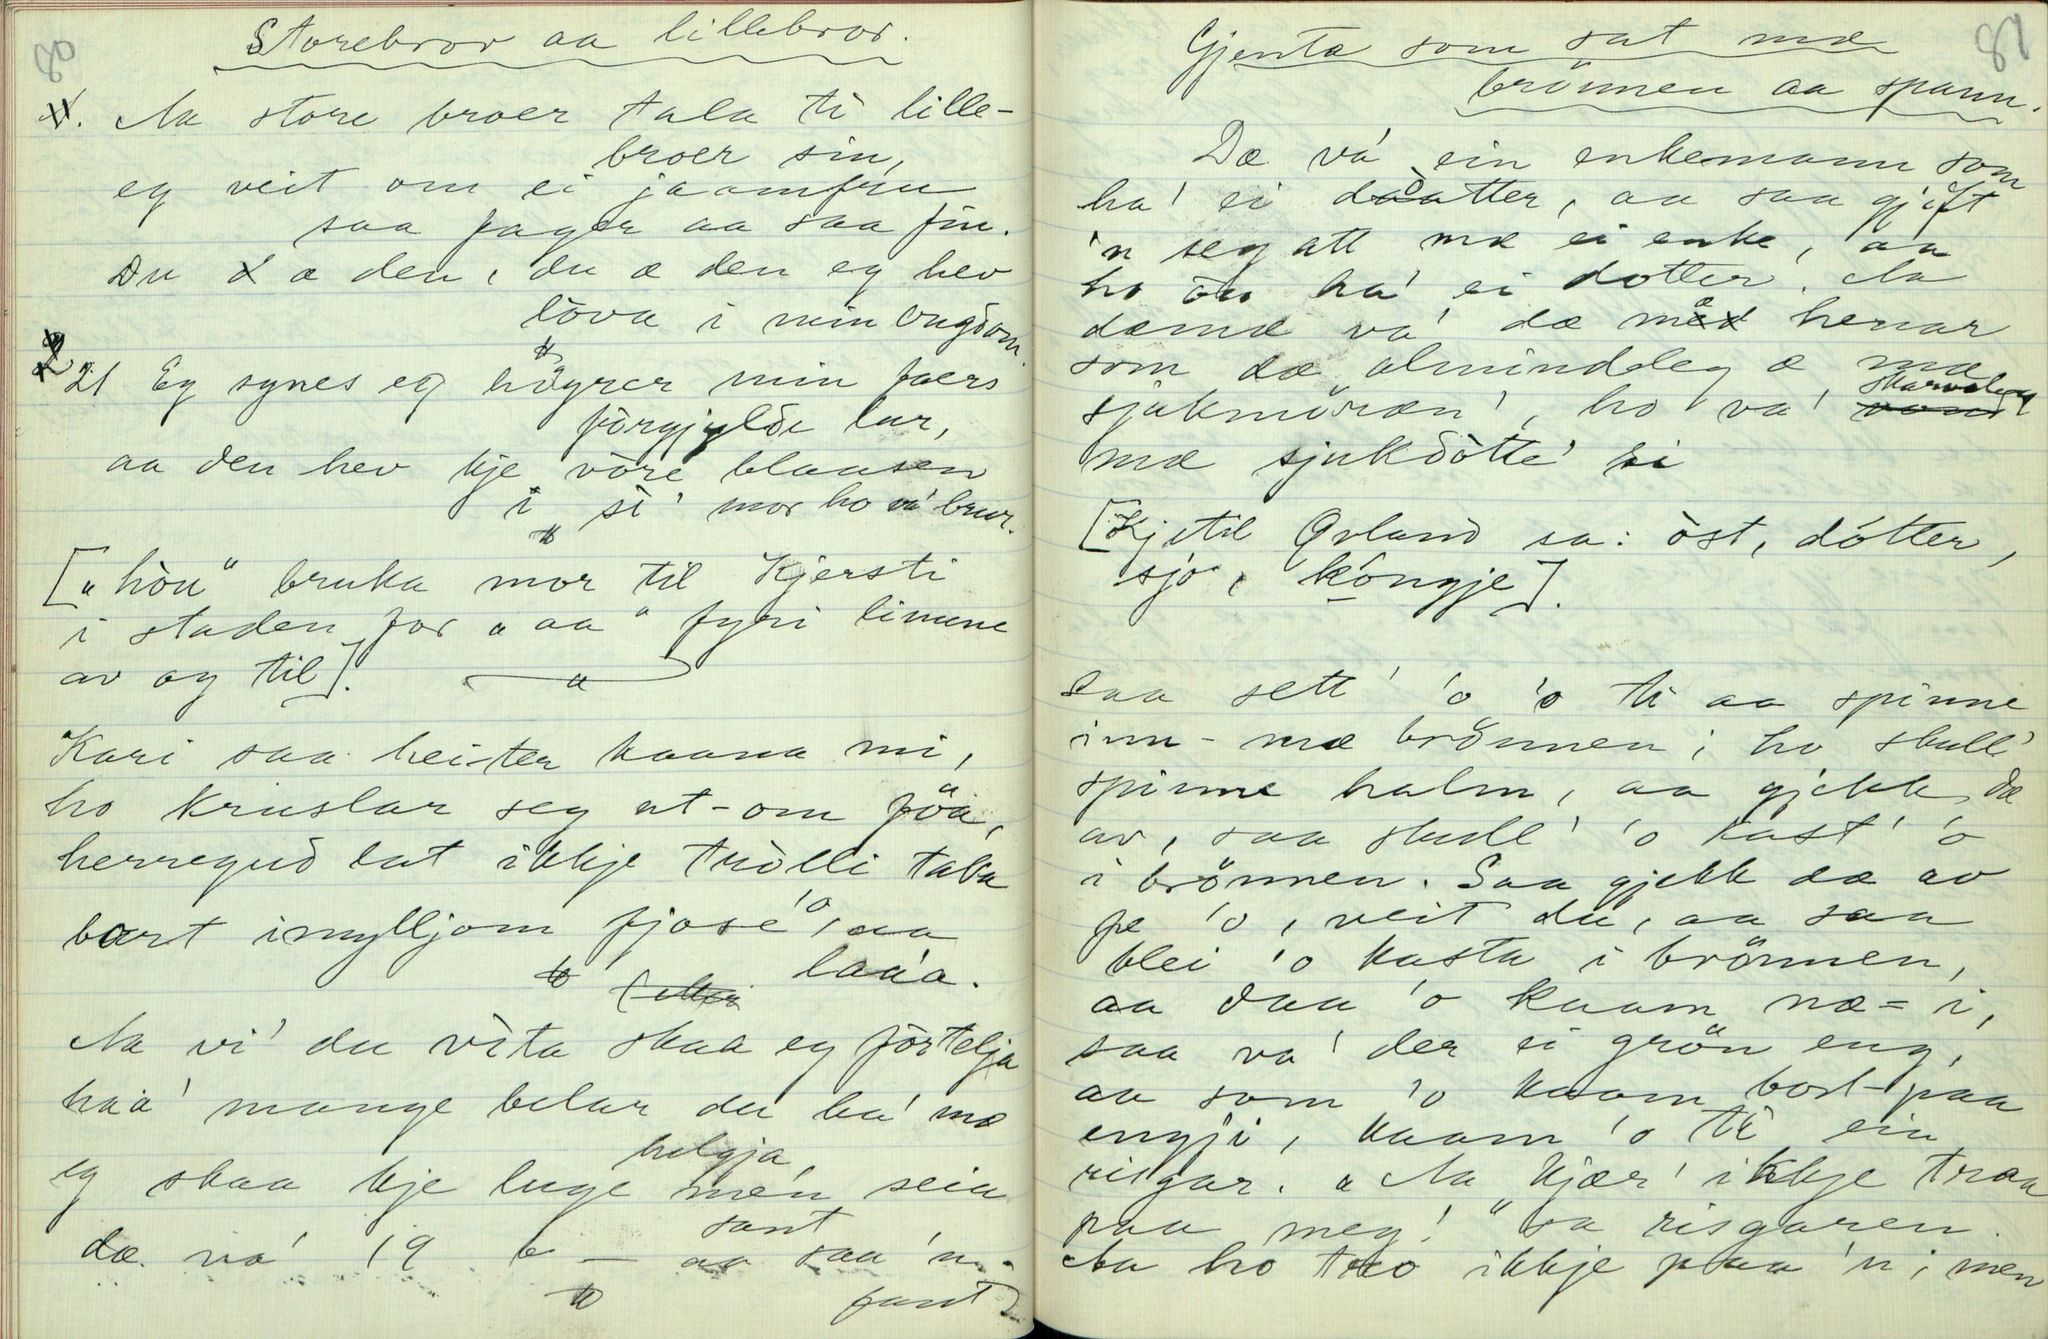 80
Storebror aa lillebror.
1. Aa store broer tala ti lille-
broer sin,
eg veit om ei jaamfru
saa fager aa saa fin.
Du æ den, du æ den eg hev
lòva i min ungdom.
2 Eg synes eg höyrer min faers
fòrgjylde lur,
aa den hev kje vòre blaasen
i si' mor ho va' brur.
["hòn" bruka mor til Kjersti
i staden for "aa" fyri linune
av og til].
Kari saa heiter kaana mi,
ho kruslar seg ut-om föa,
herregud lat ikkje tròlli taka
bort imylljom fjose' aa
laa'a.
Aa vi' du vita skaa eg förtelja
haa' mange belar du ha' mæ
eg skaa kje luge men seia
helgja
dæ va' 19 b — aa saa 'n
sant
fant
81
Gjenta som sat mæ
brönnen aa spann.
Dæ va' ein enkemann som
ha' ei daatter, aa saa gjift
'n seg att mæ ei enke, aa
ho òu ha' ei dotter. Aa
dæmæ va' dæ mæ henar
som dæ almindeleg æ mæ
sjukmòræn', ho va' skarvaleg
mæ sjukdòtte' si
[Kjetil Ørland sa: òst, dótter,
sjò, kóngje].
saa sett' 'o 'o ti aa spinne
inn-mæ brönnen; ho skull'
spinne halm, aa gjekk dæ
av, saa skull' 'o kast' 'o
i brönnen. Saa gjekk dæ av
fe 'o, veit du, aa saa
blei 'o kasta i brönnen,
aa daa 'o kaam næ-i,
saa va' der ei grön eng,
aa som 'o kaam bort-paa
engji, kaam 'o ti ein
risgar. "Aa kjær' ikkje traa
paa meg!" sa risgaren.
Aa ho trao ikkje paa 'n; men